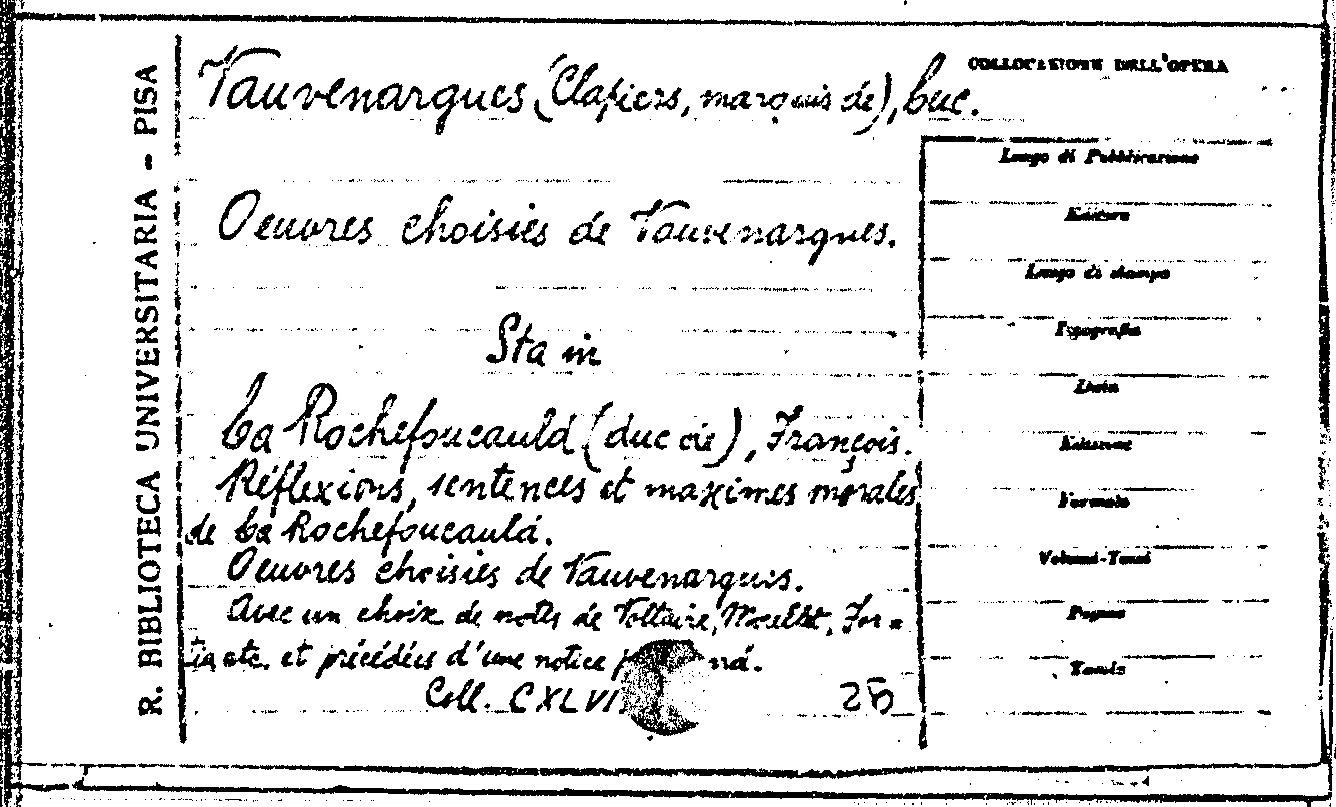 R. BIBLIOTECA UNIVERSITARIA - PISA
Vauvenargues (Clapiers, marquis de), Luc.
Oeuvres choisies de Vauvenargues.
Sta in
La Rochefoucauld (duc de), François.
Réflexions, sentences et maximes morales
de La Rochefoucauld.
Oeuvres choisies de Vauvenargues.
Avec un choix de notes de Voltaire, Morellet, For=
tia etc. et précédées d'une notice
Coll. CXLVI
COLLOCAZIONE DELL'OPERA
Luogo di Pubblicazione
Editore
Luogo di stampa
Tipografia
Data
Edizione
Formato
Volumi-Tomi
Pagine
Tavole